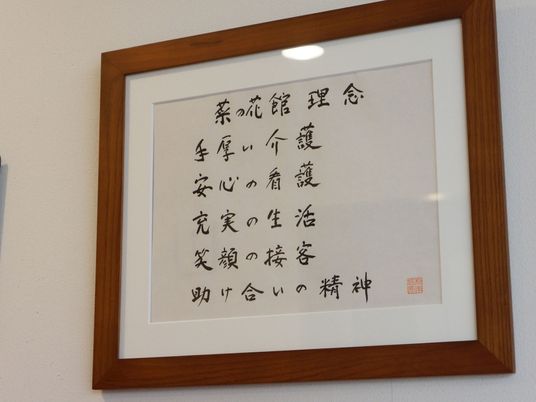 菜の花館 理念
手厚い介護
安心の看護
充実の生活
笑顔の接客
助け合いの精神